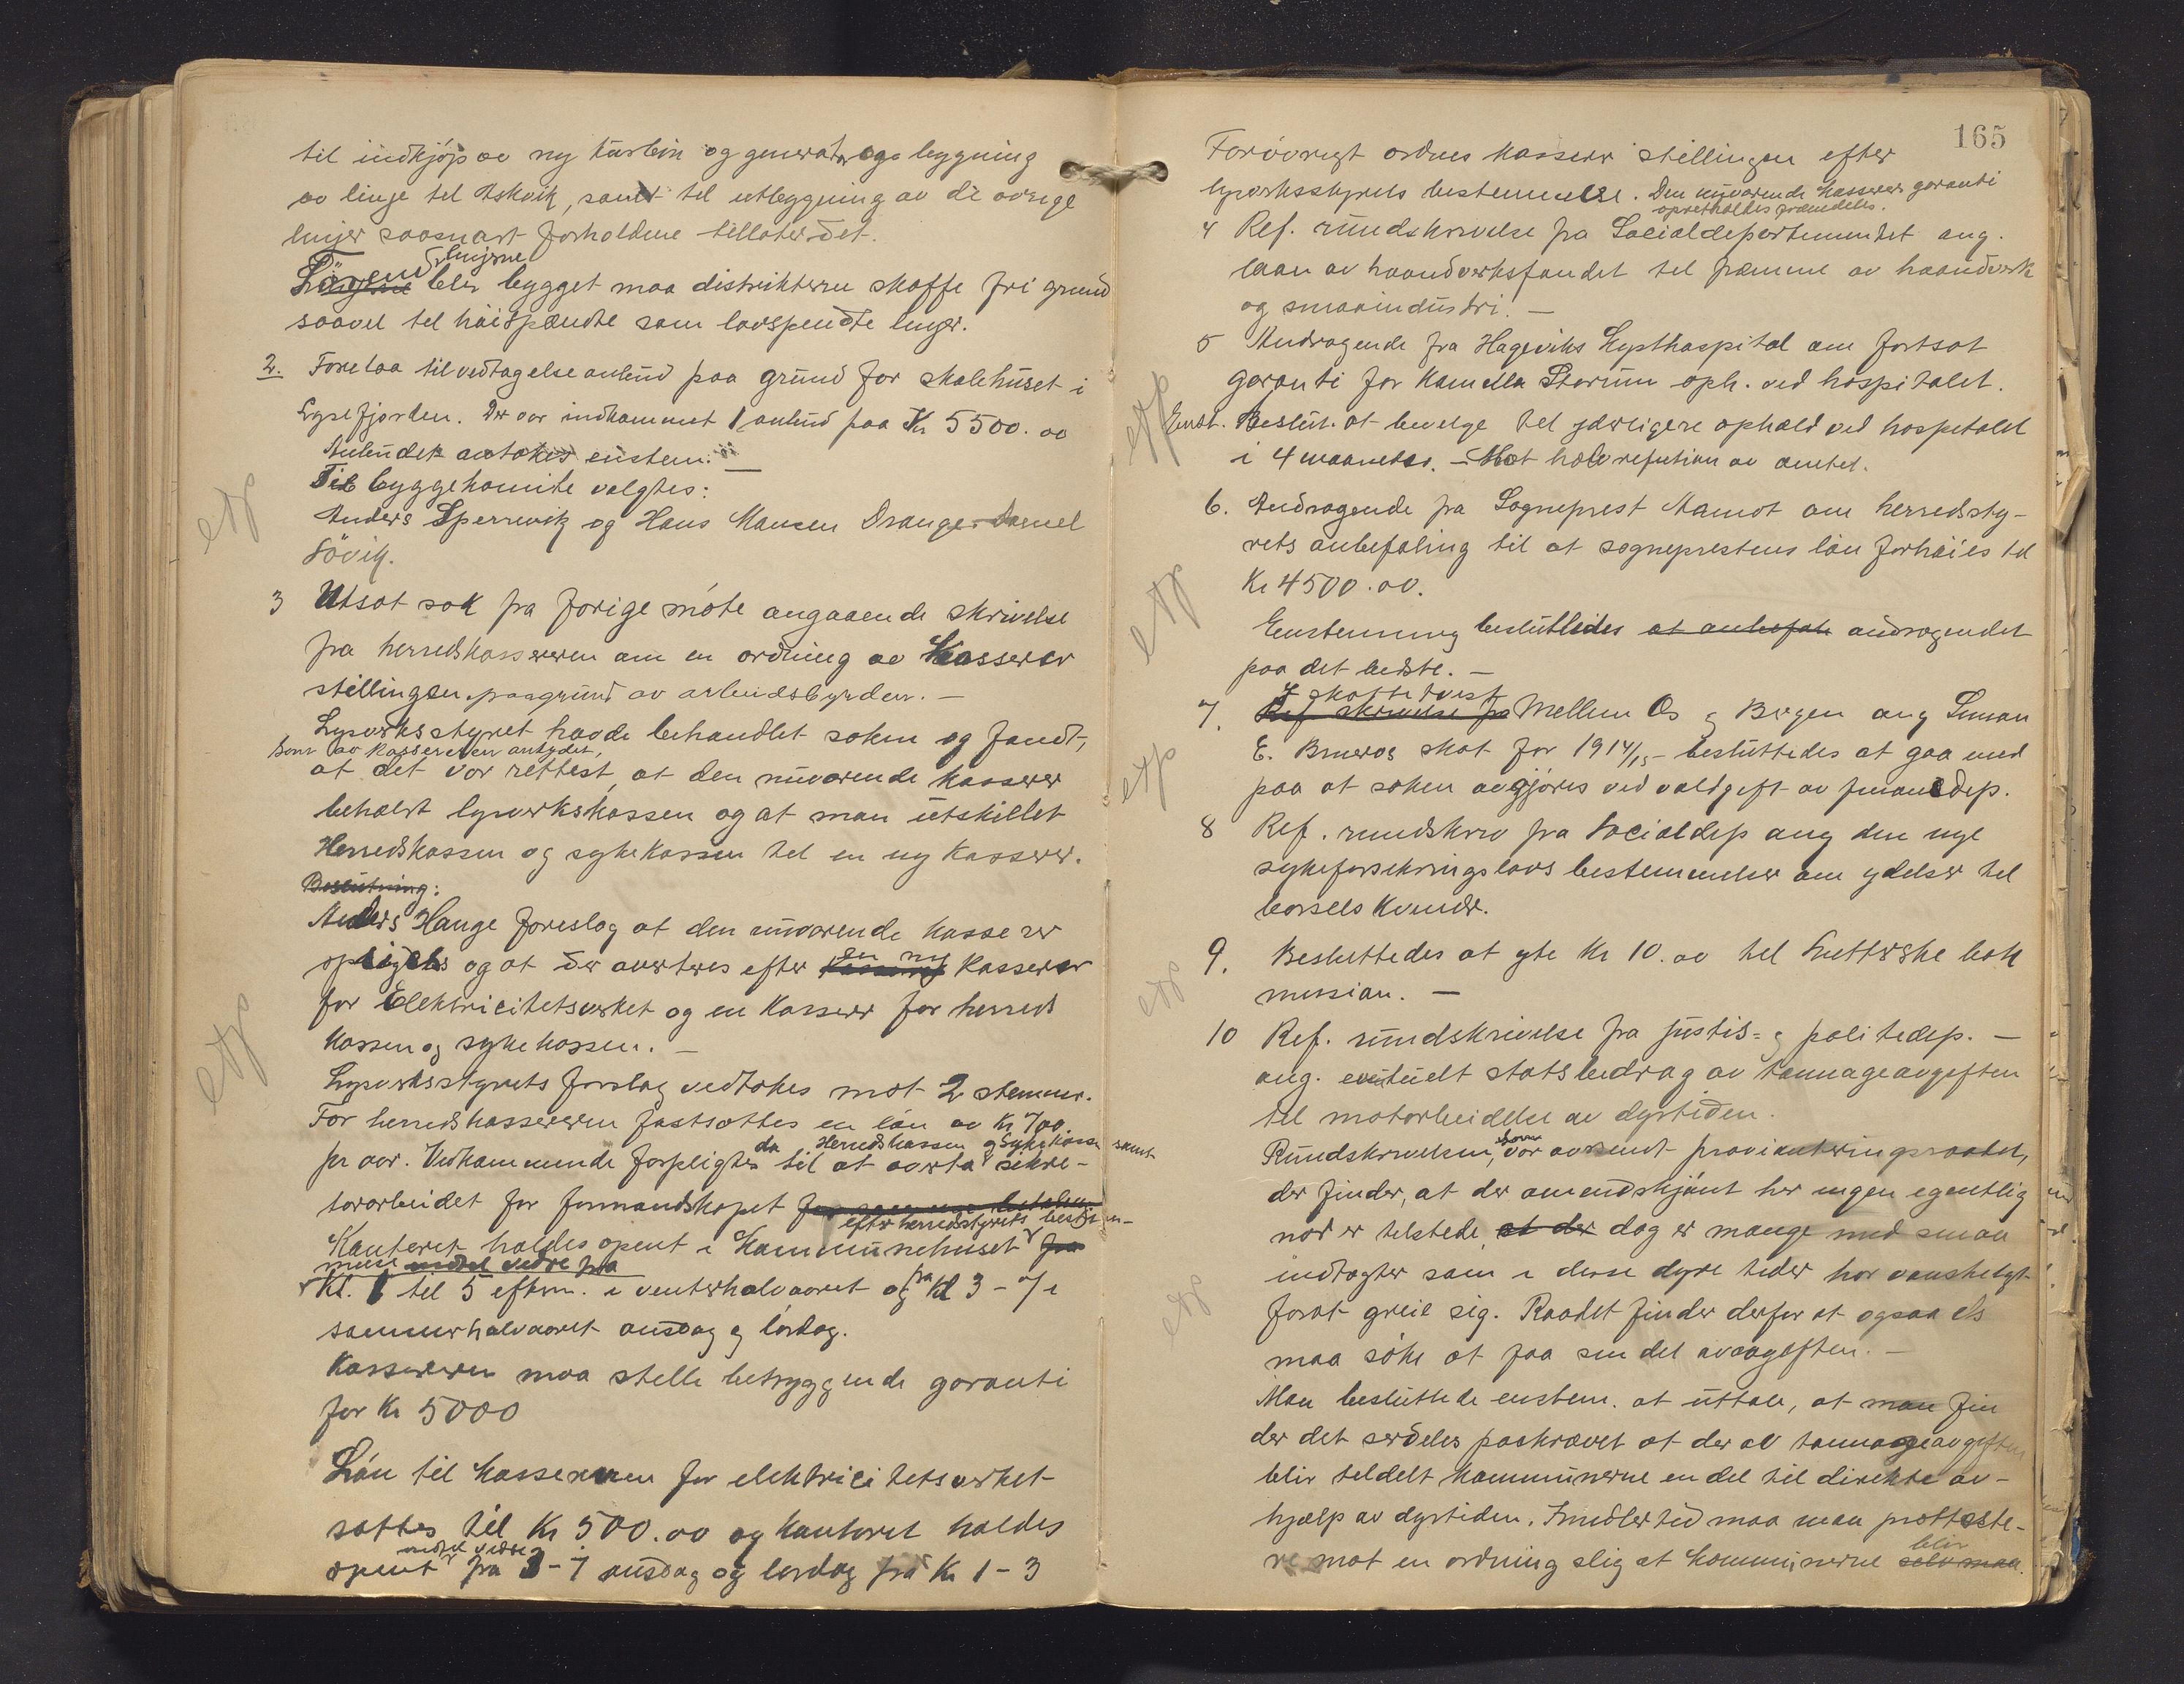 til indkjöp av ny turbin og generator ogs bygning
av linje til Askvik, samt til utbygning av de övrige
linjer saasnart forholdene tillater det.
Förend linjerne
blir bygget maa distrikterne skaffe fri grund
saavel til höispændte som lavspendte linjer.
2. Foretaa til vedtagelse anbud paa grund for skolehuset i
Lysefjorden. Der var indkommet 1 anbud paa Kr 5500.00
Anbudet antokes enstem. —
Til byggekomite valgtes:
Anders Sperrevik og Hans Mansen Drange Daniel
Sövik.
3 Utsat sak fra forige möte angaaende skrivelse
fra herredskassereren om en ordning av Kasserer
stillingen paagrund av arbeidsbyrden. —
Lysverksstyret havde behandlet saken og fandt,
som av kassereren antydet,
at det var rettest, at den nuværende kasserer
beholdt lysverkskassen og at man utskillet
Herredskassen og sykekassen til en ny kasserer.
Beslutning:
Anders Hauge foreslog at den nuværende kasserer
opsigelses og at der averteres efter en ny Kasserer
for Elektricitetsverket og en Kasserer for herreds
kassen og sykekassen. —
Lysverksstyrets forslag vedtokes mot 2 stemmer.
For herredskassereren fastsattes en lön av Kr 700.
da Herredskassen og Sykekasse samt
pr aar. Vedkommende forpligtes til at overta sekre-
tærarbeidet for formandskapet
efter herredstyrets bestem-
Kontoret holdes opent i Kommunehuset fra
midt vedre fra
Kl. 1 til 5 efterm. i venterhalvaaret og fra Kl 3 - 7 i
sommerhalvaaret onsdag og lördag.
Kassereren maa stelle betryggende garanti
for Kr 5000
Lön til kassereren for elektricitetsverket
sattes til Kr 500.00 og kontoret holdes
opent fra 3 - 7 onsdag og lördag fra Kl 1 - 3
165
Forövrigt ordnes kasserer stillingen efter
lysverksstyrets bestemmelse. Den nuværende kasserers garanti
opretholdes fremdeles.
4 Ref. rundskrivelse fra Socialdepartementet ang.
laan av haandverksfondet til fremme av haandverk
og smaaindustri. —
5 Andragende fra Hageviks Kysthospital om fortsat
garanti for Kamilla Storum oph. ved hospitalet.
Enst. Beslut. at bevilge til yderligere ophold ved hospitalet
i 4 maaneder. — Mot halv refution av amtet.
6. Andragende fra Sogneprest Mamot om herredsty-
rets anbefaling til at sogneprestens lön forhöies til
Kr 4500.00.
Enstemmig besluttedes at anbefale andragendet
paa det bedste. —
I skattetvist
7. Ref skrivelse fra Mellem Os og Bergen ang Simon
E. Brueros skat for 1914/15 - besluttedes at gaa med
paa at saken avgjöres ved voldgift av finansdep.
8 Ref. rundskriv fra Socialdep ang den nye
sykeforsikringslovs bestemmelser om ydelser til
barsels kvinder.
9. Besluttedes at yte Kr 10.00 til Lutherske bok
mission. —
10 Ref. rundskrivelse fra justis- og politidep. —
ang. eventuelt statsbidrag av tonnageavgiften
til motarbeidelse av dyrtiden.
Rundskrivelsen, som var avsendt provianteringsraadet,
der finder, at der omendskjönt her ingen egentlig
nöd er tilstede, at der dog er mange med smaa
indtægter som i disse dyre tider har vanskeligt
forat greie sig. Raadet finder derfor at ogsaa Os
maa söke at faa sin del av avgiften. —
Man besluttede enstem. at uttale, at man fin
der det serdeles paakrævet at der av tonnageavgiften
blir tildelt kommunerne en del til direkte av-
hjælp av dyrtiden. Imidlertid maa man protteste-
re mot en ordning slig at kommunerne blir selv maa